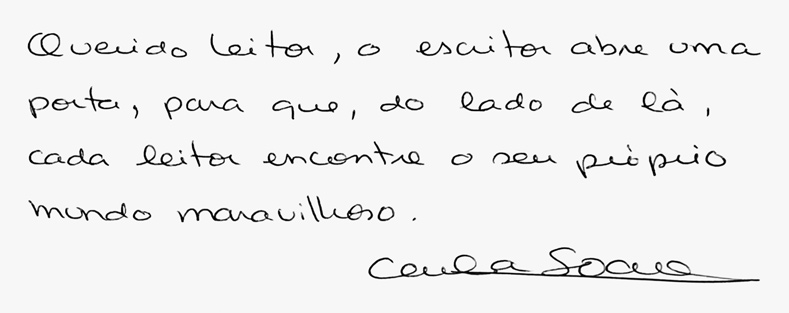 Querido leitor, o escritor abre uma
porta, para que, do lado de là,
cada leitor encontre o seu pròprio
mundo maravilhoso.
Carla Soares